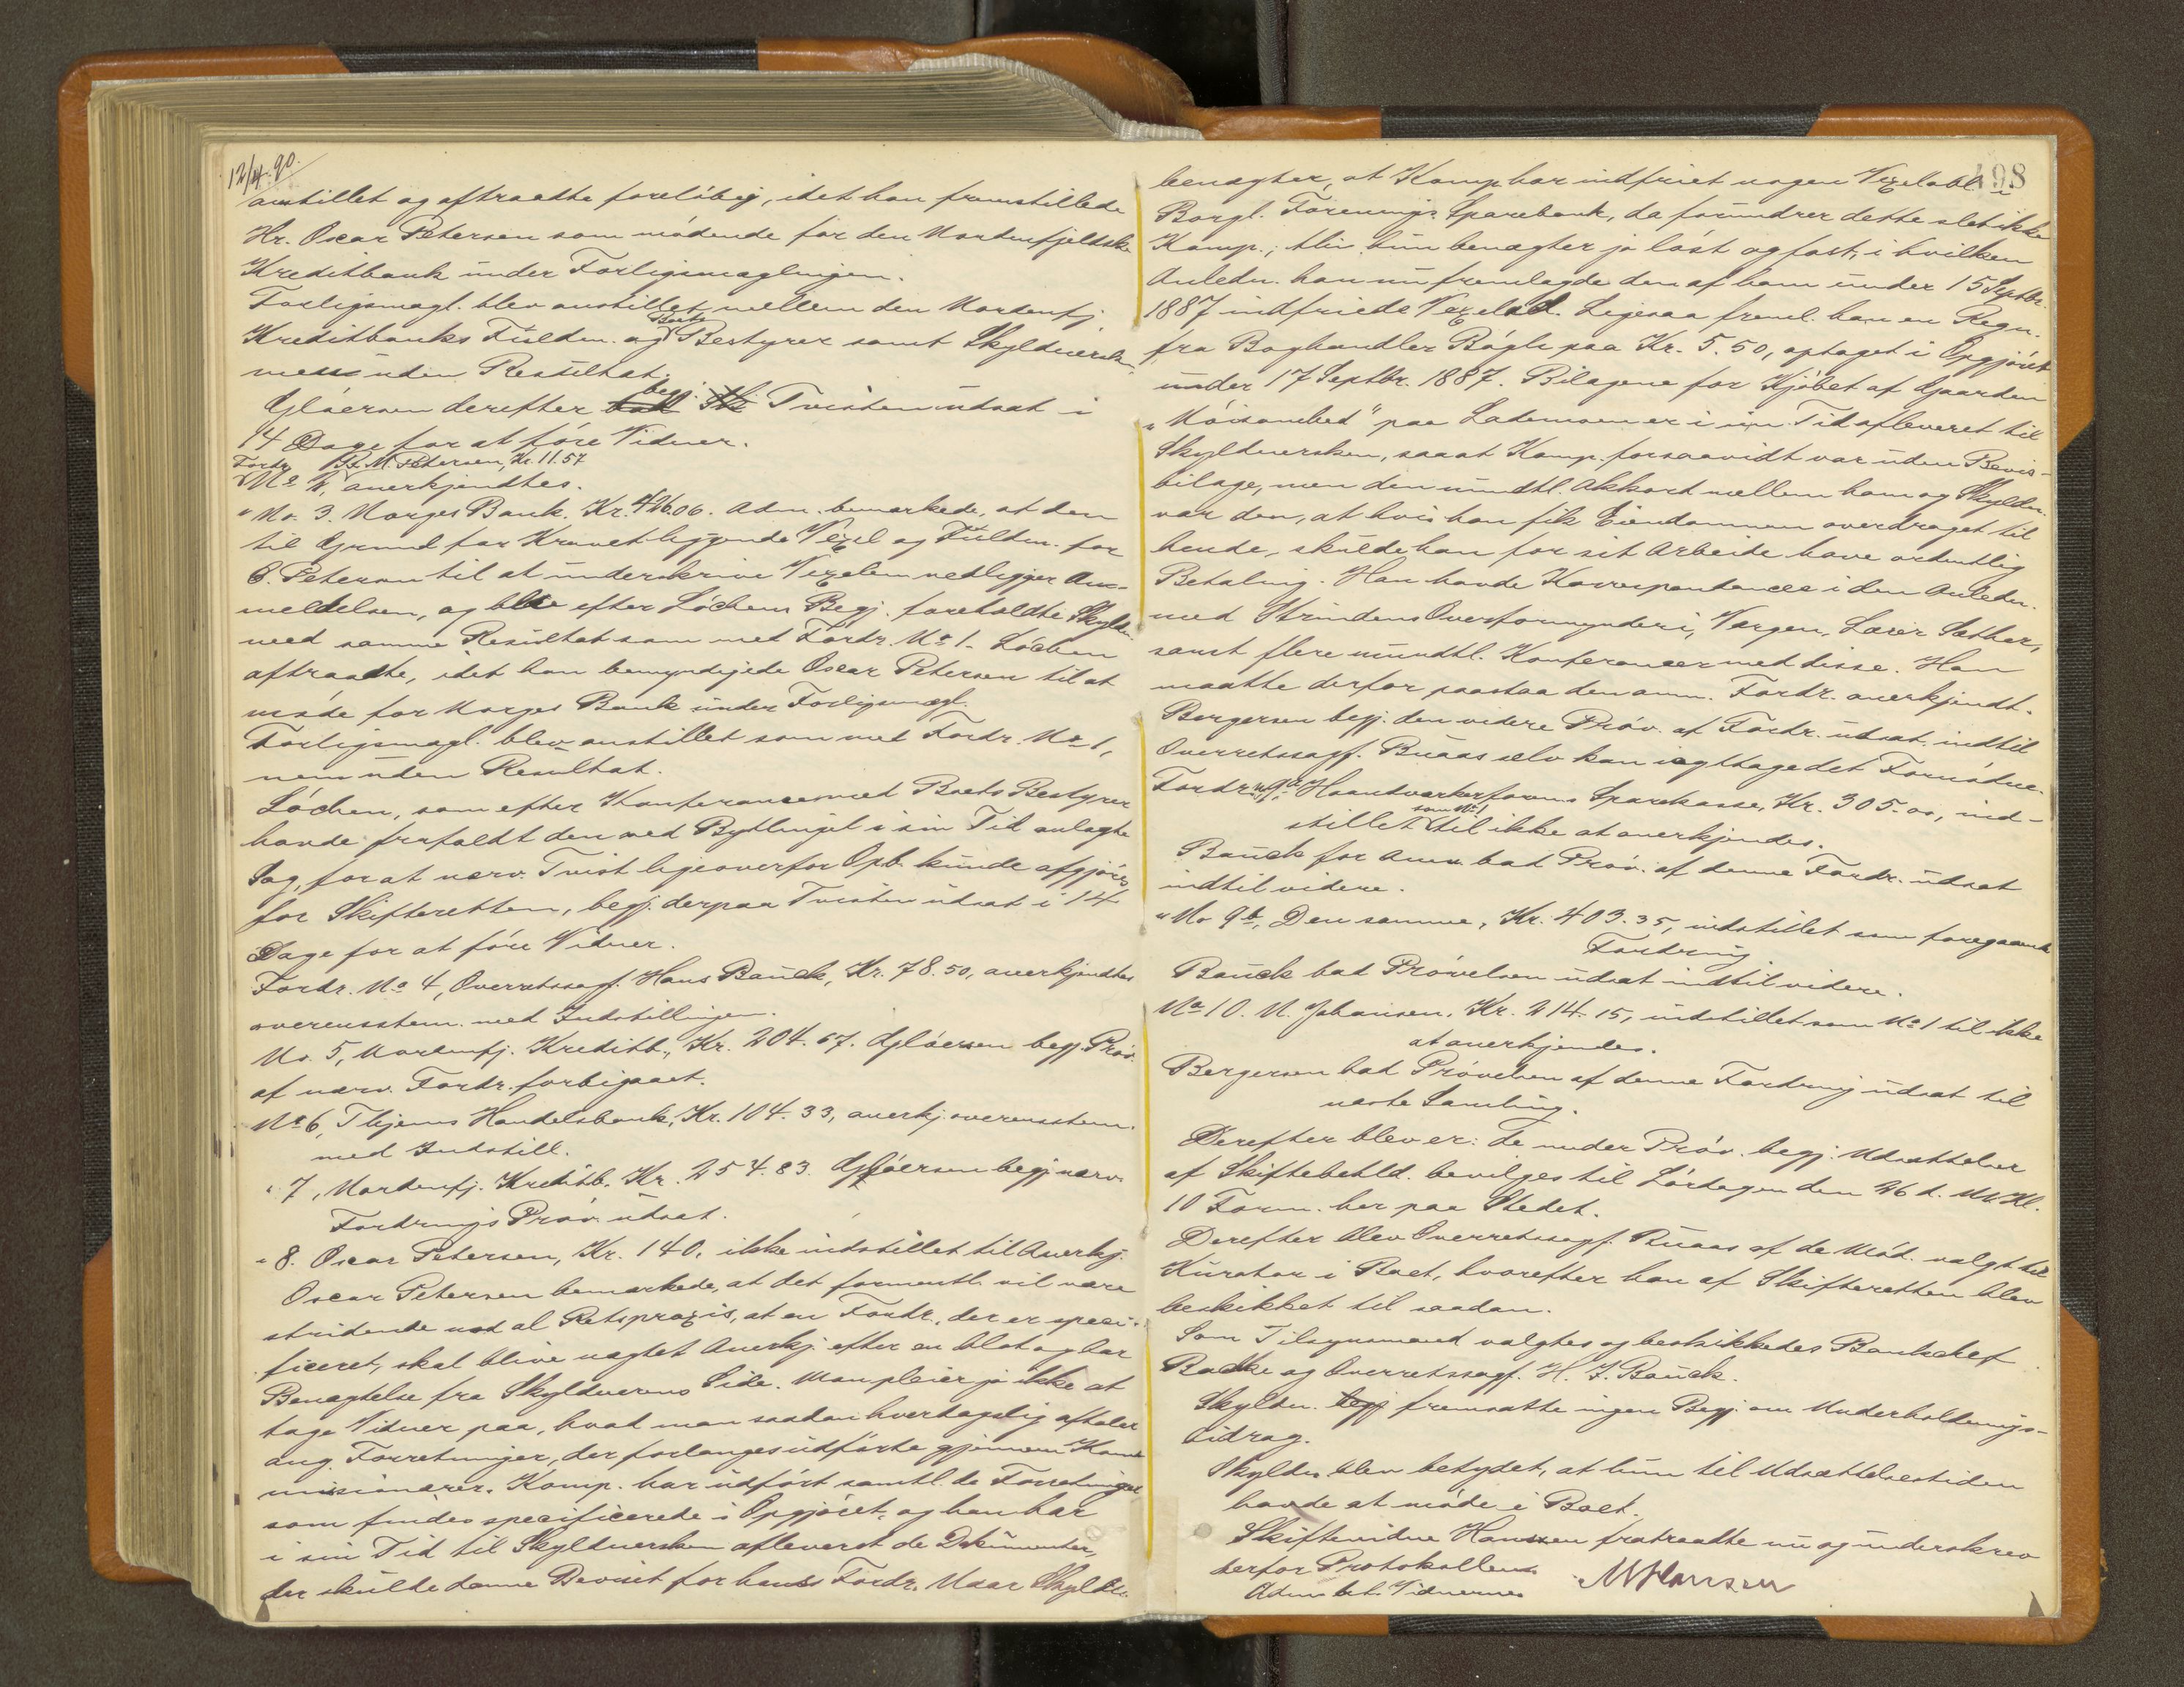 12/4.90.
anstillet og aftraadte foreløbig, idet han fremstillede
Hr. Oscar Petersen som mødende for den Nordenfjeldske
Kreditbank under Forligsmæglingen.
Forligsmægl. blev anstillet mellem den Nordenfj.
Kreditbanks Fuldm. og Boets Bestyrer samt Skyldnersken
men uden Resultat.
Gløersen derefter begj. Tvisten udsat i
14 Dage for at føre Vidner.
Fordr. No 2, Fr. M. Petersen, Kr. 11.57
anerkjendtes.
" No. 3. Norges Bank. Kr. 426.06. Adm. bemærkede, at den
til Grund for Kravet liggende Vexel og Fuldm. for
C. Petersen til at underskrive Vexelen vedligger An-
meldelsen, og blev efter Lóchens Begj. foreholdte Skyldn.
med samme Resultat som med Fordr. No 1. Lóchen
aftraadte, idet han bemyndigede Oscar Petersen til at
móde for Norges Bank under Forligsmægl.
Forligsmægl. blev anstillet som med Fordr. No 1,
men uden Resultat.
Lóchen, som efter Konferance med Boets Bestyrer
havde frafaldt den ved Bythinget i sin Tid anlagte
Sag, for at nærv. Tvist ligeoverfor Opb. kunde afgjøres
for Skifteretten, begj. derpaa Tvisten udsat i 14
Dage for at føre Vidner.
Fordr. No 4, Overretssagf. Hans Bauck, Kr. 78.50, anerkjendtes
overensstem. med Indstillingen.
No. 5, Nordenfj. Kreditb., Kr. 204.67. Gløersen begj. Prøv.
af nærv. Fordr. forbigaaet.
No 6, Thjems Handelsbank, Kr. 104.33, anerkj. overensstem.
med Indstill.
" 7, Nordenfj. Kreditb. Kr. 254.83. Gløersen begj. nærv.
Fordrings Prøv. udsat.
" 8. Oscar Petersen, Kr. 140, ikke indstillet til Anerkj.
Oscar Petersen bemærkede, at det formentl. vil være
stridende mod al Retspraxis, at en Fordr., der er speci-
ficeret, skal blive nægtet Anerkj. efter en blot og bar
Benægtelse fra Skyldnerens Side. Man pleier jo ikke at
tage Vidner paa, hvad man saadan hverdagslig aftaler
ang. Forretninger, der forlanges udførte gjennem Kom-
missionærer. Komp. har udført samtl. de Forretninger,
som findes specificerede i Opgjøret, og han har
i sin Tid til Skyldnersken afleveret de Dokumenter,
der skulde danne Beviset for hans Fordr. Naar Skyldn.
498
benægter, at Komp. har indfriet nogen Vexelobl. i
Borgl. Forenings Sparebank, da forundrer dette slet ikke
Komp.; thi hun benægter jo løst og fast, i hvilken
Anledn. han nu fremlagde den af ham under 15 Septbr.
1887 indfriede Vexelobl. Ligesaa freml. han en Regn.
fra Boghandler Bøgh paa Kr. 5.50, optaget i Opgjøret
under 17 Septbr. 1887. Bilagene for Kjøbet af Gaarden
"Nøisomhed" paa Lademoen er i sin Tid afleveret til
Skyldnersken, saaat Komp. forsaavidt var uden Bevis-
bilage, men den mundtl. Akkort mellem ham og Skyldn.
var den, at hvis han fik Eiendommen overdraget til
hende, skulde han for sit Arbeide have ordentlig
Betaling. Han havde Korrespondance i den Anledn.
med Strindens Overformynderi, Værgen, Sæther,
samt flere mundtl. Konferancer med disse. Han
maatte derfor paastaa den anm. Fordr. anerkjendt.
Bergersen begj. den videre Prøv. af Fordr. udsat indtil
Overretssagf. Buaas selv kan iagttage det Fornødne.
Fordr. No 9a, Haandværkerforens Sparekasse, Kr. 305.00, ind-
stillet som No 1 til ikke at anerkjendes.
Bauck for Anm. bad Prøv. af denne Fordr. udsat
indtil videre.
" No 9b, Den samme, Kr. 403.35, indstillet som foregaaende
Fordring
Bauck bad Prøvelsen udsat indtil videre.
No 10. N. Johansen, Kr. 214.15, indstillet som No 1 til ikke
at anerkjendes.
Bergersen bad Prøvelsen af denne Fordring udsat til
næste Samling.
Derefter blev de under Prøv. begj. Udsættelser
af Skiftebehld. bevilges til Lørdagen den 26 d. M. Kl.
10 Form. her paa Stedet.
Derefter blev Overretssagf. Buaas af de Mød. valgt til
Kurator i Boet, hvorefter han af Skifteretten blev
beskikket til saadan.
Som Tilsynsmænd valgtes og beskikkedes Bankchef
Backe og Overretssagf. H. J. Bauck.
Skyldn. fremsatte ingen Begj. om Underholdnings-
bidrag.
Skyldn. blev betydet, at hun til Udsættelsestiden
havde at møde i Boet.
Skiftevidne Hanssen fratraadte nu og underskrev
derfor Protokollen. M Hanssen
Adm. bet. Vidnerne